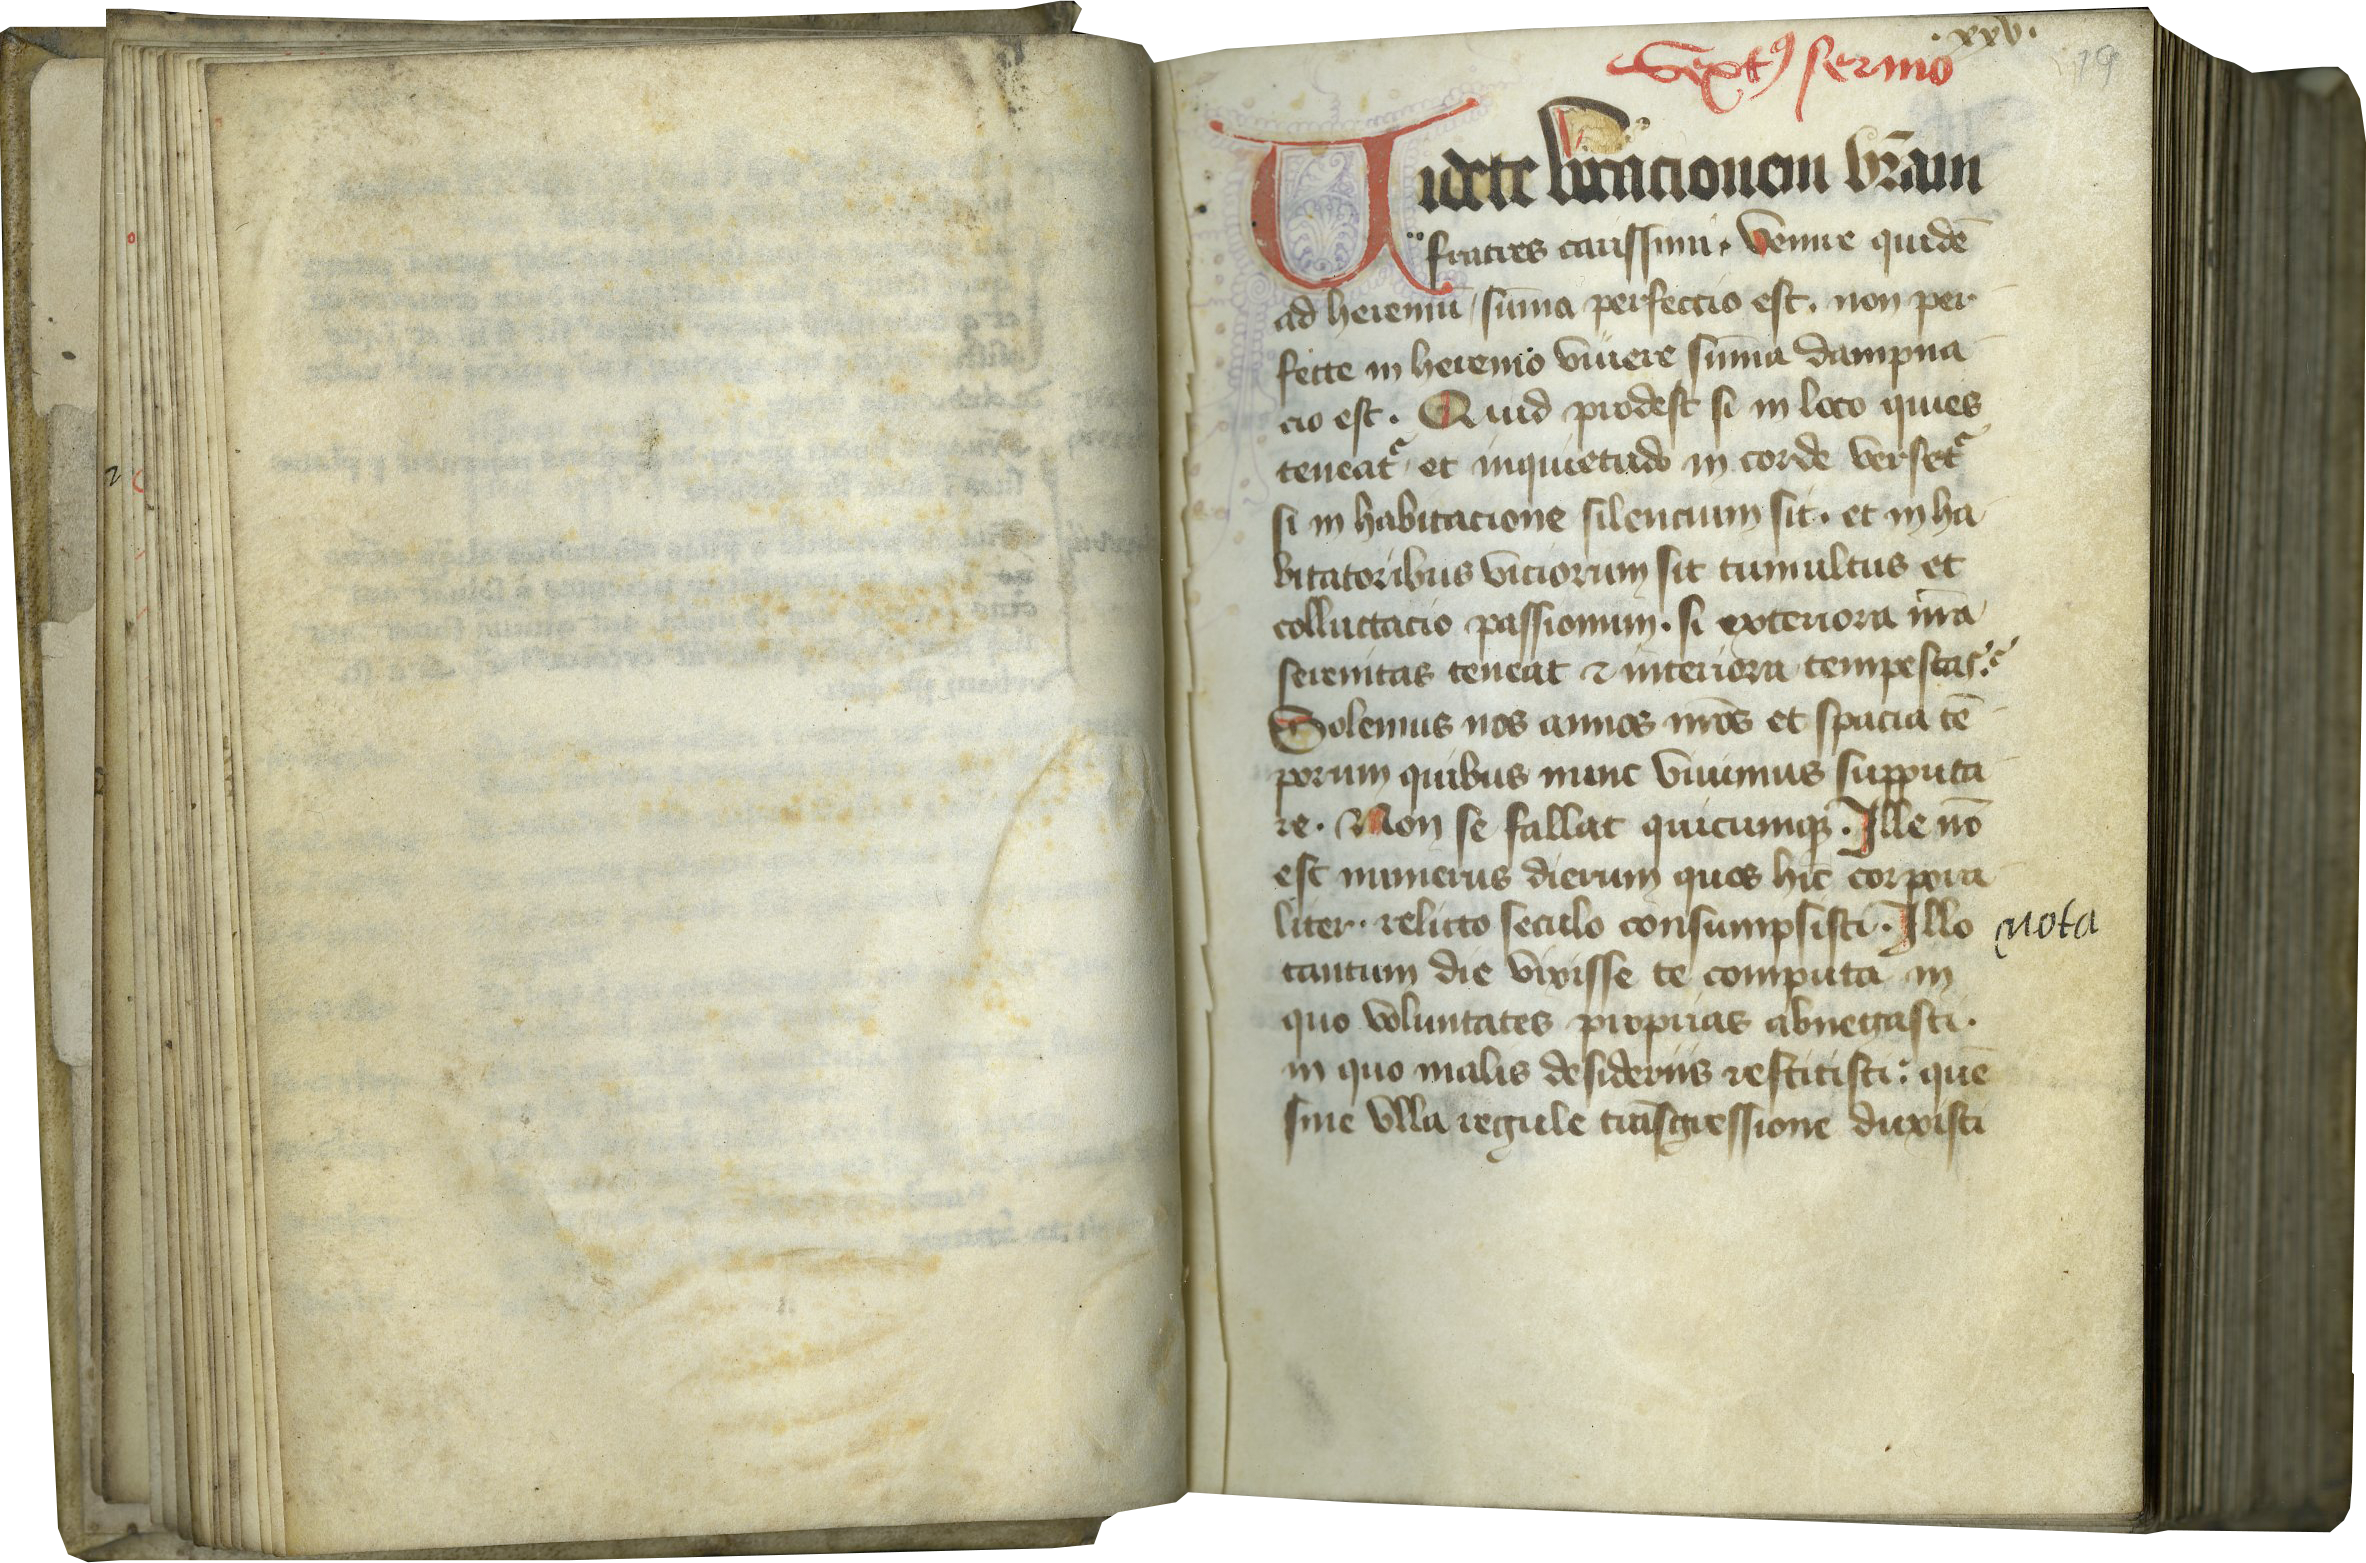 .xxv.
19
Sextꝰ sermo
Uidete vocacionem vr̄am
fratres carissimi. Venire quidē
ad heremū sūma perfectio est. non per
fecte in heremo viuere sūma dampna
cio est. Quid prodest si in loco quies
teneatᷣ et inquietudo in corde versetᷣ
si in habitacione silencium sit. et in ha
bitatoribus viciorum sit tumultus et
colluctacio passionum. si exteriora nr̄a
serenitas teneat ⁊ interiora tempestas.
Solemus nos annos nr̄os et spacia tē
porum quibus nunc viuimus supputa
re. Non se fallat quicumqꝫ. Ille nō
est numerus dierum quos hic corpora
liter. relicto seculo consumpsisti. Illo
nota
tantum die vixisse te computa in
quo voluntates proprias abnegasti.
in quo malis desideriis restitisti: quē
sine vlla regule trāsgressione duxisti